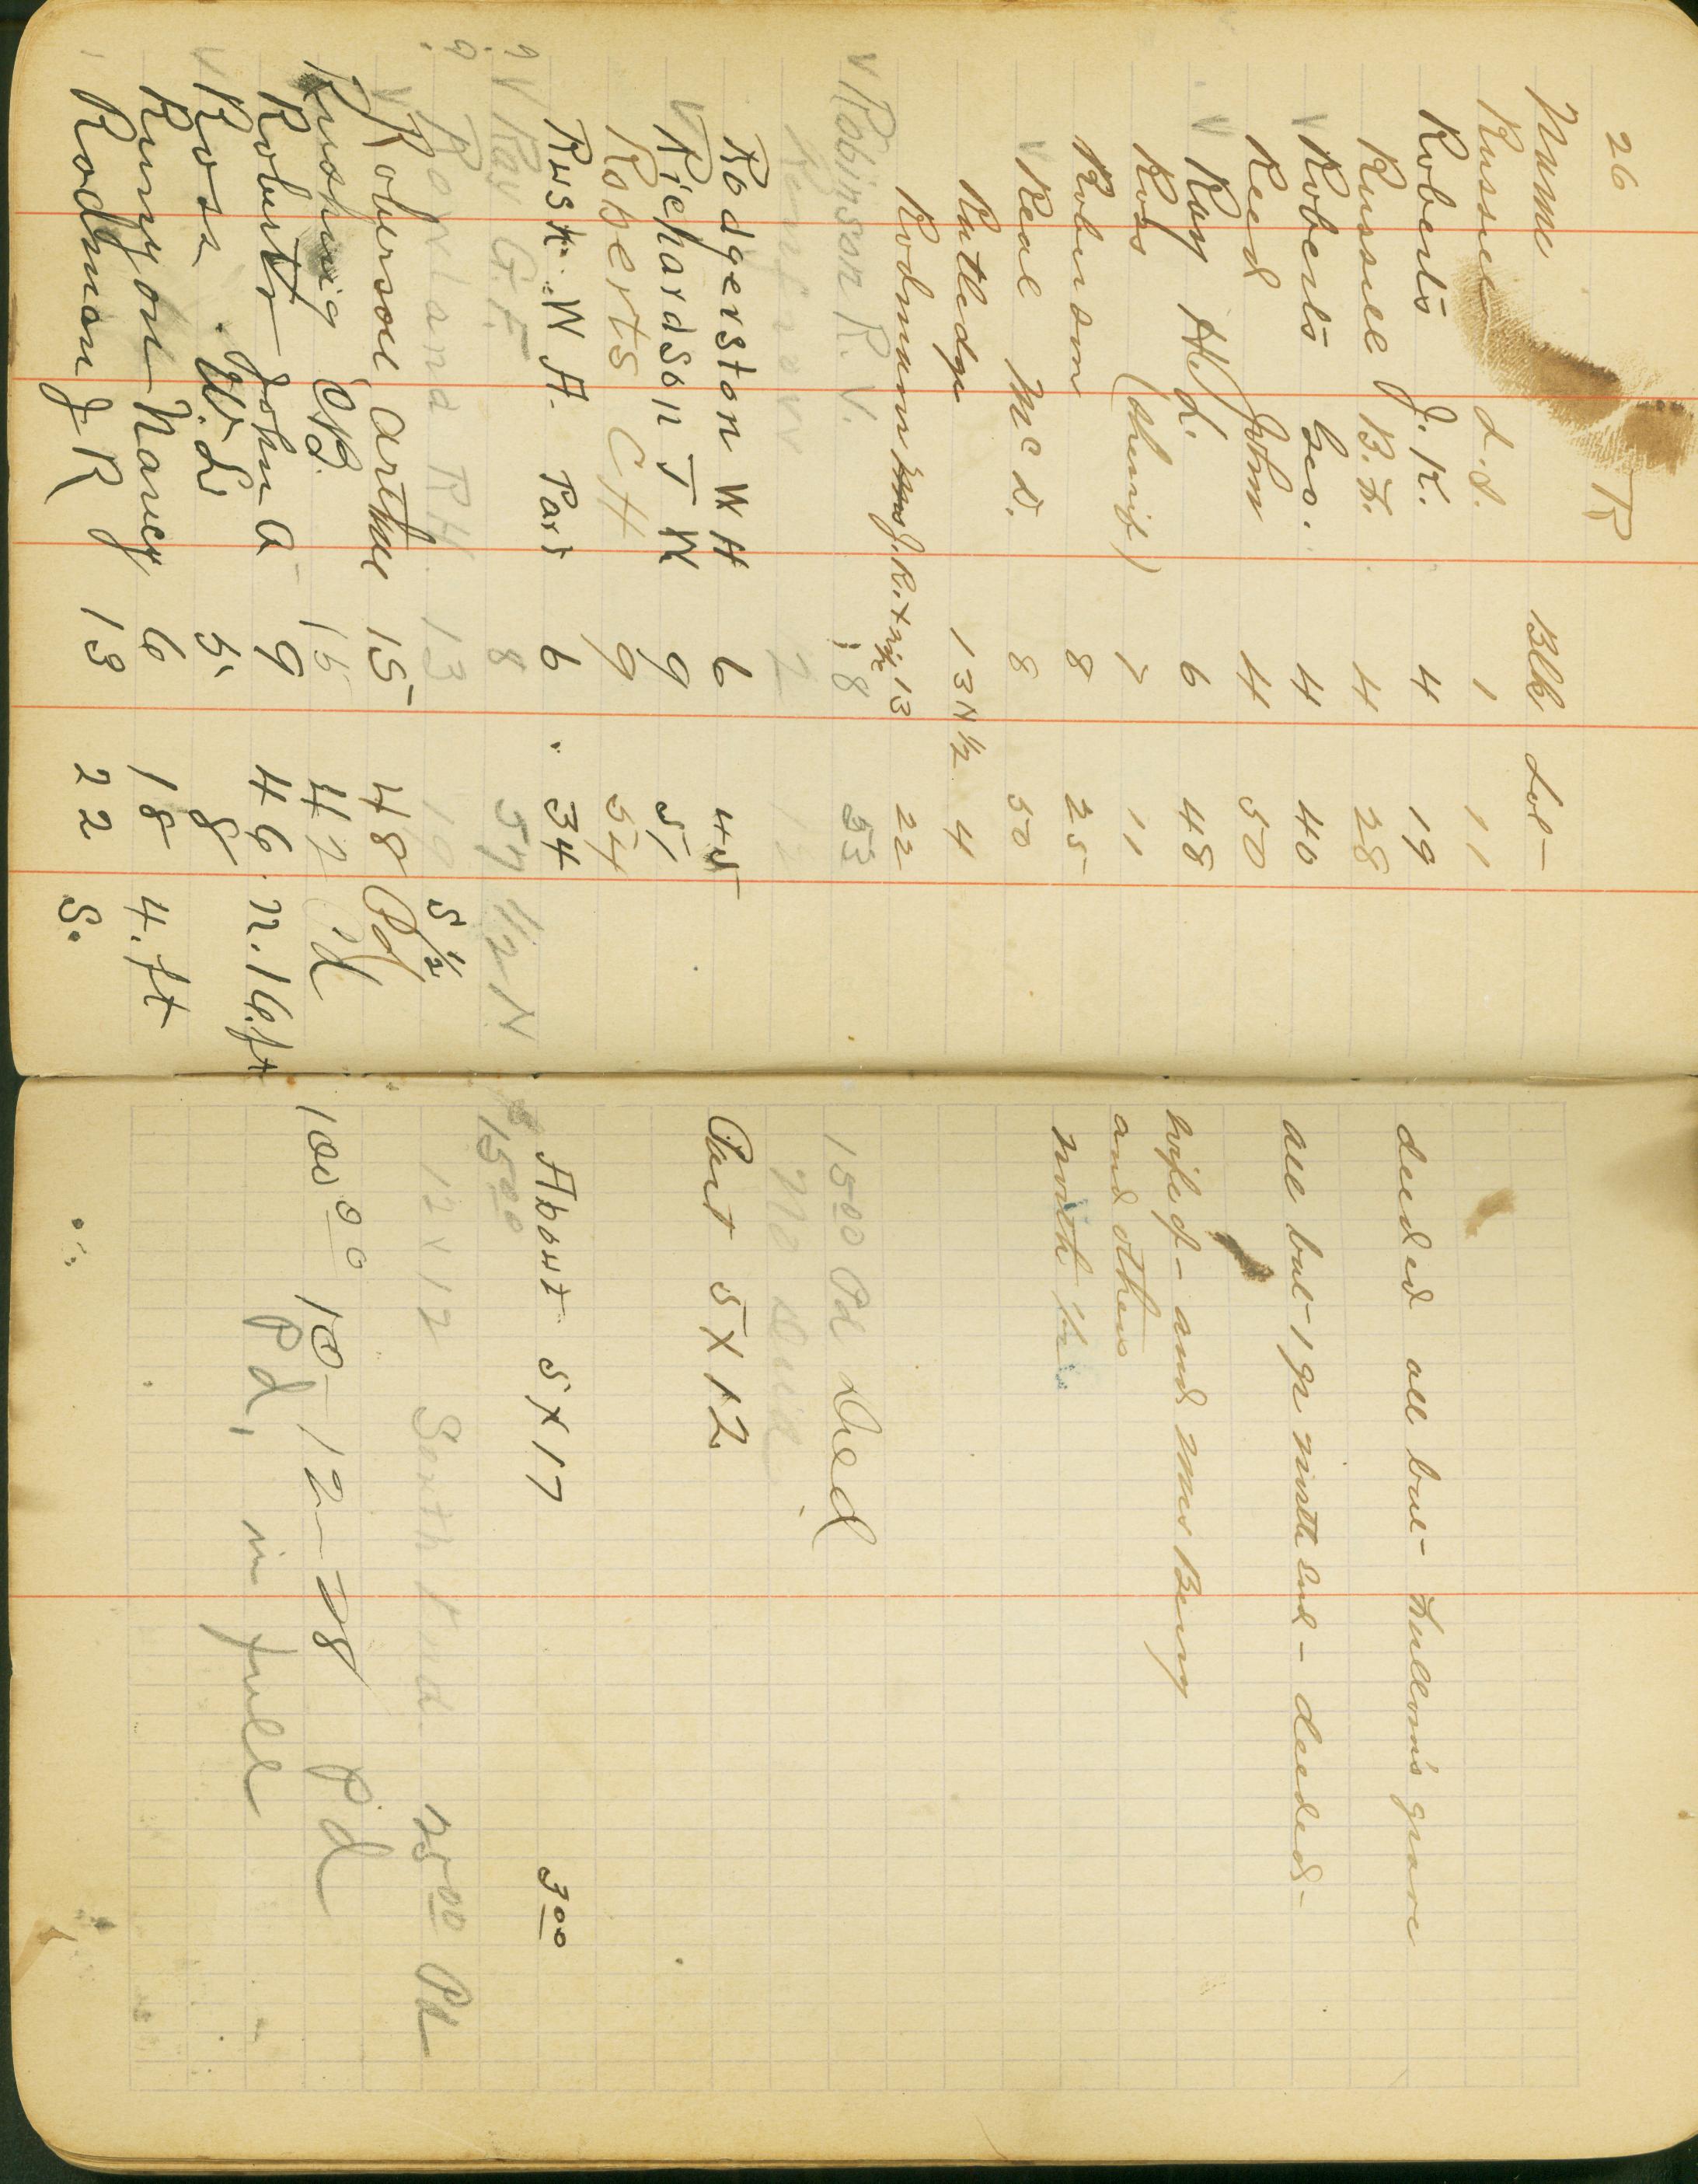 26 R
Name Blk Lot
Russell L. S. 1 11
Roberts J. K. 4 19 deeded all but grave
Russell B. F. 4 28
v Roberts Geo. 4 40 all but 1 gr north end - deeded -
Reed John 4 50
v Ray H. L. 6 48 wife of - and Mrs Berry
Ross (sherif) 7 11 and others
Robinson 8 25 north 1/2
v Real Mc D. 8 50
Rutledge 13 N 1/2 4
Rodmann J. R. + wife 13 22
v Robinson R. V. 8 53 1500 Pd Deed
2 12 No Deed
Rodgerston W H 6 45 Part 5 X 12
v Richardson J W 9 5
Roberts C H 9 54
Rusk W A. Part 6 34 About 5 X 17 3 00
? v Ray G. F. 8 57 1/2 N 15 00
? Rowland R H. 13 10 S 1/2 12 X 12 South End. 25 00 Pd
v Robersoll Arthur 15 48 Pd
C B. 15 42 Pd 100 00 10-12-18 Pd
Roberts John A 9 46 N. 16 ft Pd, in full
v Ross W. L. 5 8
Runyon Nancy 6 18 4. ft
Rodman J R 13 22 S.